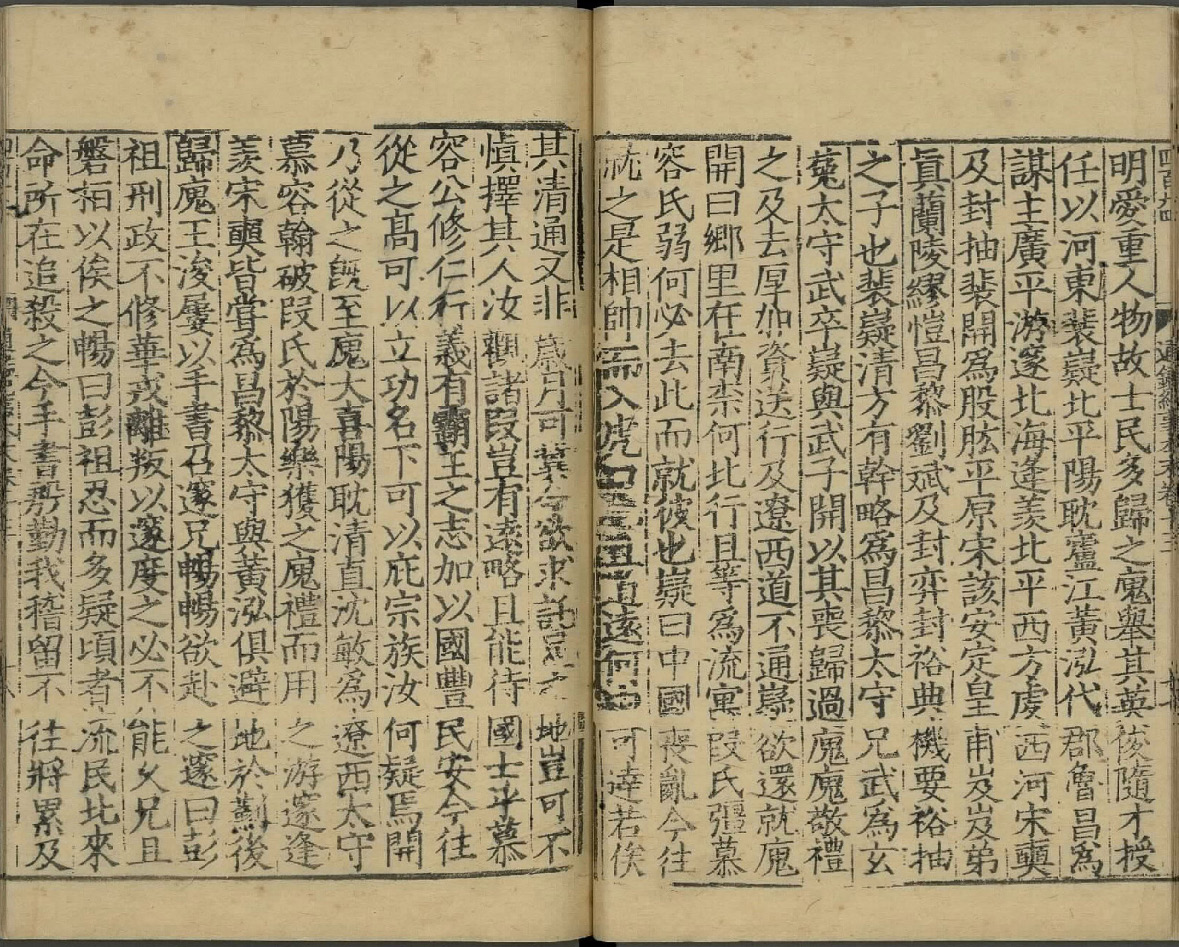 明愛重人物故士民多歸之廆舉其英俊隨才授
任以河東裴嶷北平陽耽廬江黃泓代郡魯昌爲
謀主廣平游邃北海逢羨北平西方虔西河宋奭
及封抽裴開爲股肱平原宋該安定皇甫岌岌弟
眞蘭陵繆愷昌黎劉斌及封弈封裕典機要裕抽
之子也裴嶷清方有幹略爲昌黎太守兄武爲玄
菟太守武卒嶷與武子開以其喪歸過廆廆敬禮
之及去厚加資送行及遼西道不通嶷欲還就廆
開曰鄉里在南柰何北行且等爲流寓叚氏彊慕
容氏弱何必去此而就彼也嶷曰中國喪亂今往
就之是相帥而入虎口也且道遠何由可達若俟
其清通又非歲月可冀今欲求託足之地豈可不
慎擇其人汝觀諸叚豈有遠略且能待國士乎慕
容公修仁行義有霸王之志加以國豐民安今往
從之高可以立功名下可以庇宗族汝何疑焉開
乃從之旣至廆大喜陽耽清直沈敏爲遼西太守
慕容翰破叚氏於陽樂獲之廆禮而用之游邃逢
羨宋奭皆嘗爲昌黎太守與黃泓俱避地於薊後
歸廆王浚屢以手書召邃兄暢暢欲赴之邃曰彭
祖刑政不修華戎離叛以邃度之必不能久兄且
磐桓以俟之暢曰彭祖忍而多疑頃者流民北來
命所在追殺之今手書殷勤我稽留不往將累及